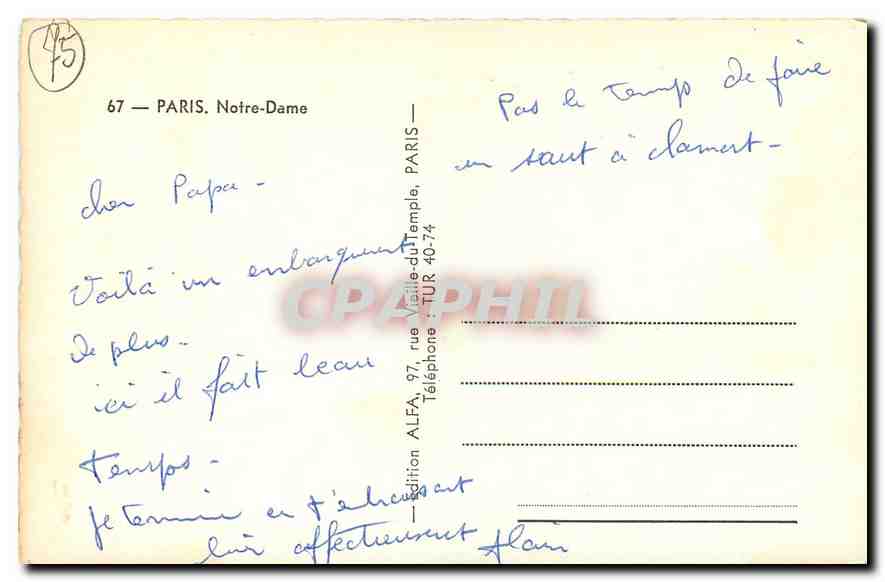 75
67 — PARIS. Notre-Dame
cher Papa -
Voilà un embarquement
de plus -
ici il fait beau
temps -
je termine en t'embrassant
bien affectueusement Alain
Pas le temps de faire
un saut à Clamart -
—édition ALFA, 97, rue Vieille-du-Temple, PARIS—
Téléphone : TUR 40-74
CPAPHIL